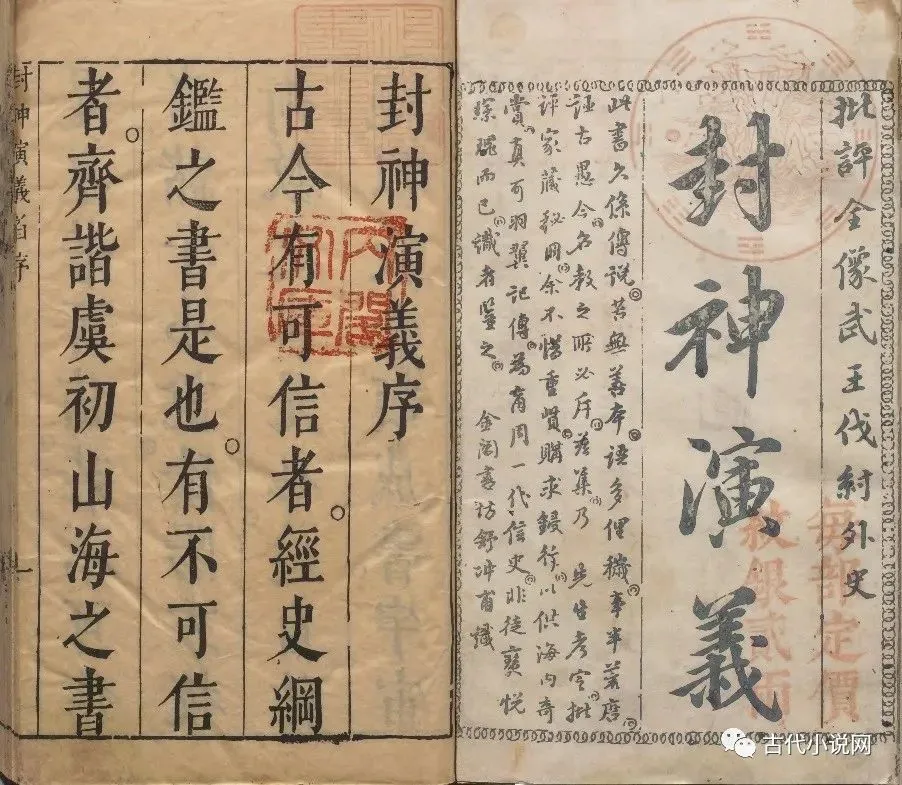 批評全像武王伐紂外史
每部定價
紋銀貳兩
封神演義
此書久係傳說苦無善本語多俚穢事半荒唐
古愚今名教之所必斥茲集乃 先生考定批
評家藏秘冊余不惜重貲購求鋟行以供海內奇
賞真可羽翼記傳為商周一代信史非徒寶悅
琛瑰而已識者鑒之 金閶書坊舒冲甫識
封神演義序
古今有可信者經史綱
鑑之書是也有不可信
者齊諧虞初山海之書
封神演義 序
一
內閣
文庫
古代小说网